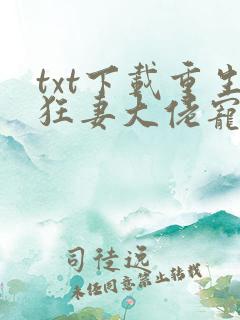 txt下载重生
狂妻大佬宠
司徒远
未经同意禁止转载